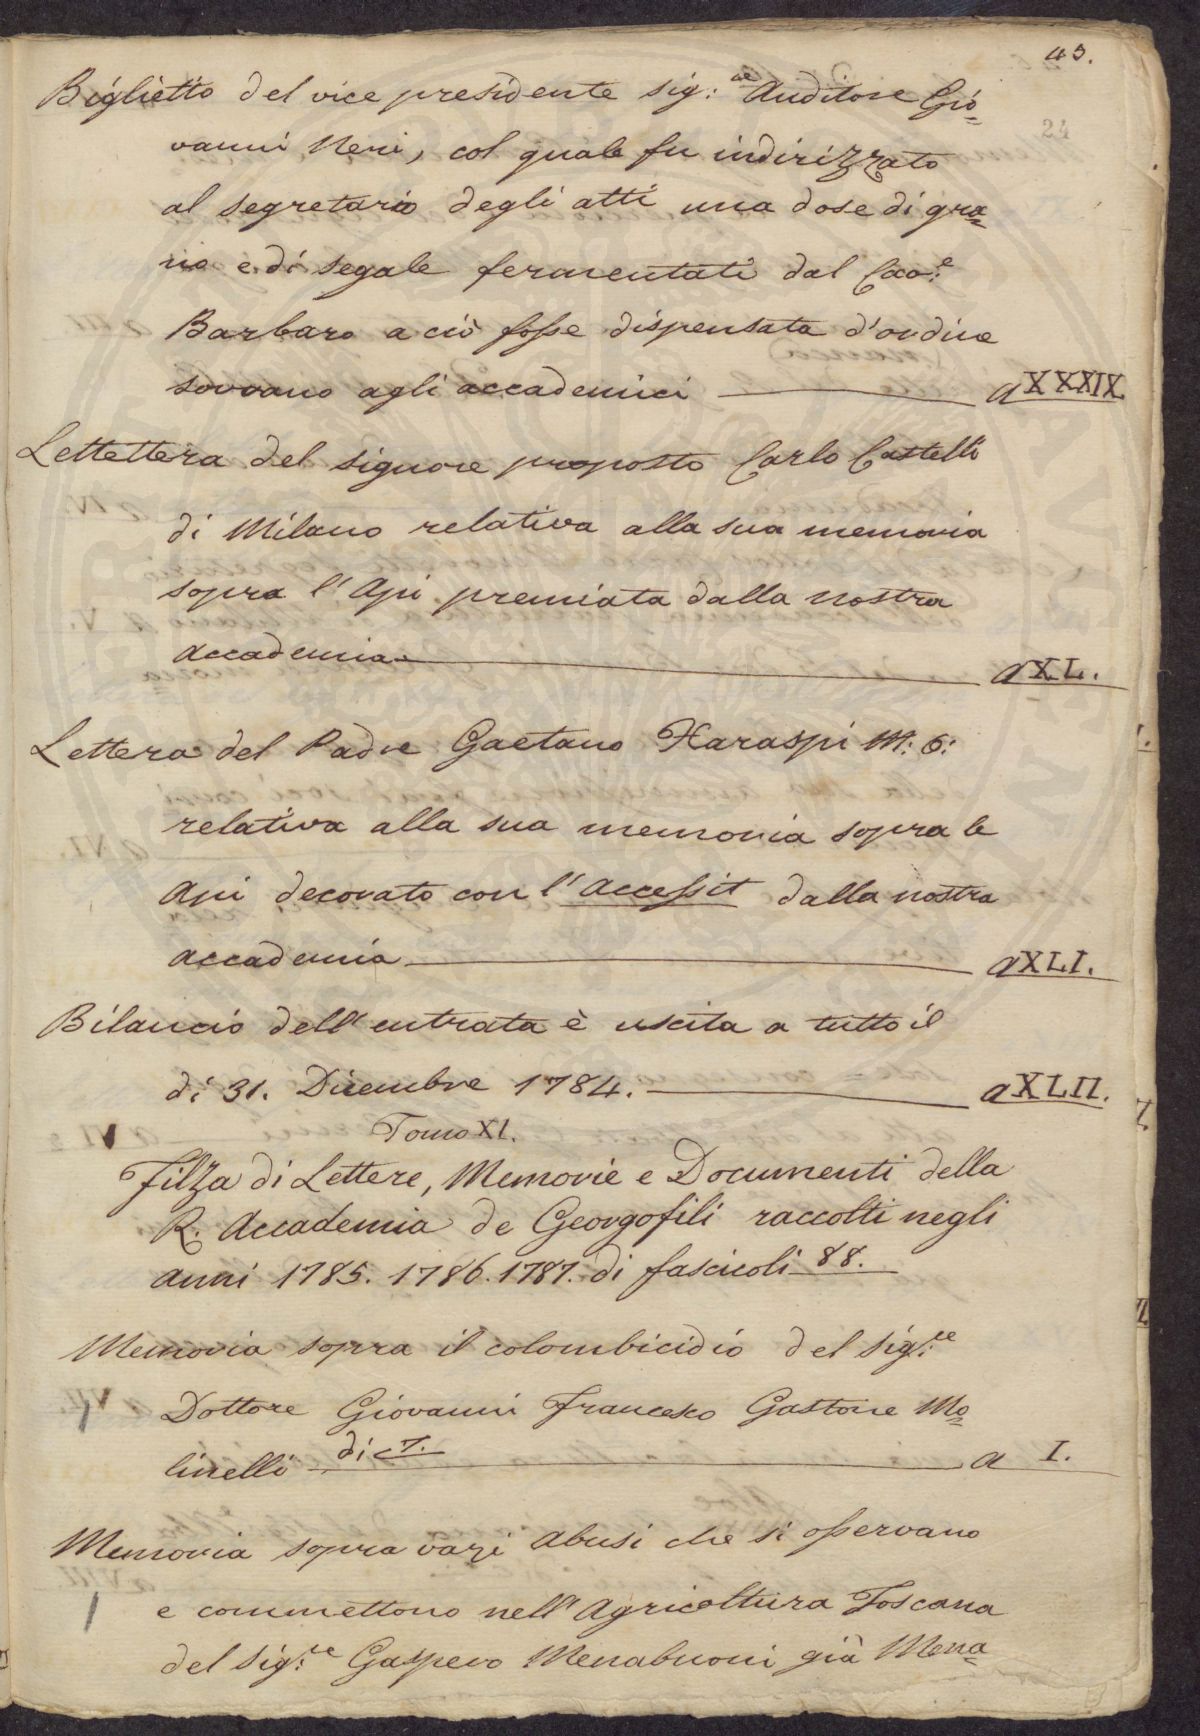 43.
24
Biglietto del vice presidente sig:re Auditore Gio=
vanni Neri, col quale fu indirizzato
al segretario degli atti una dose di gra=
no e di segale fermentati dal Cav:e
Barbaro a ciò fosse dispensata d'ordine
sovrano agli accademici a XXXIX.
Lettettera del signore proposto Carlo Castelli
di Milano relativa alla sua memoria
sopra l'Api premiata dalla nostra
accademia a XL.
Lettera del Padre Gaetano Haraspi M: O:
relativa alla sua memoria sopra le
Api decorato con l'Accessit dalla nostra
accademia a XLI.
Bilancio dell'entrata è uscita a tutto il
dì 31. Dicembre 1784. a XLII.
Tomo XI.
Filza di Lettere, Memorie e Documenti della
R. Accademia de Georgofili raccolti negli
anni 1785. 1786. 1787. di fascicoli 88.
Memoria sopra il colombicidio del Sig:re
Dottore Giovanni Francesco Gastone Mo=
linelli di c 7. a I.
Memoria sopra varj abusi che si osservano
e commettono nell'Agricoltura Toscana
del Sig:re Gaspero Menabuoni già Mena=